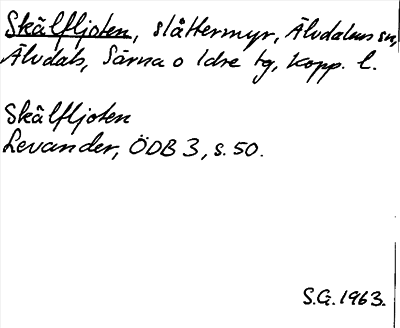 Skälfljoten, slåttermyr, Älvdalens sn,
Älvdals, Särna o Idre tg, Kopp. l.
Skälfljoten
Levander, ÖDB 3, s. 50.
S.G. 1963.